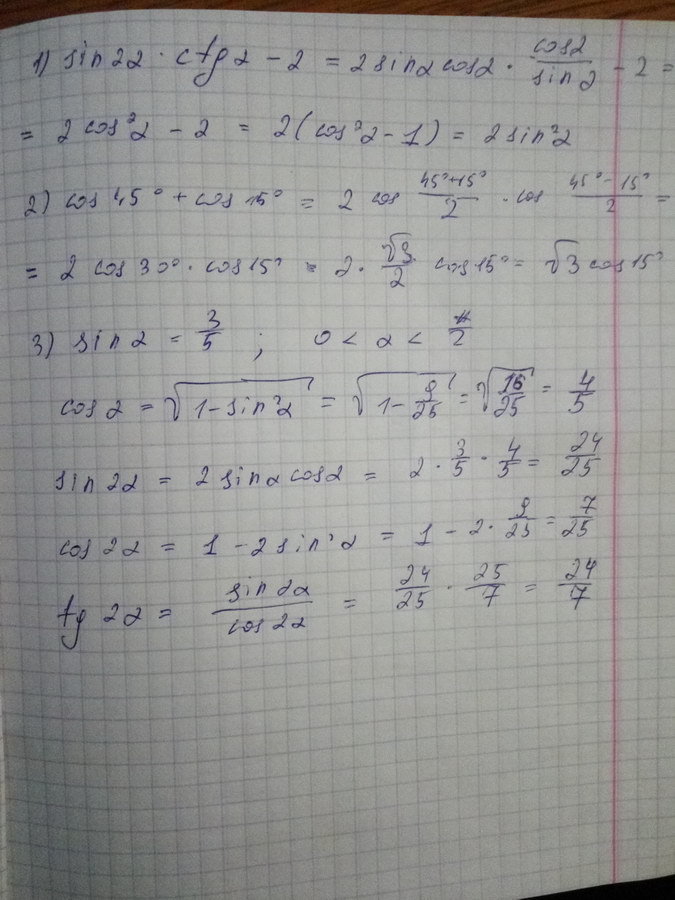 1) sin 2α · ctg α - 2 = 2 sin α cos α · cos α / sin α - 2 =
= 2 cos²α - 2 = 2(cos²α - 1) = 2 sin²α
2) cos 45° + cos 15° = 2 cos (45°+15°)/2 · cos (45°-15°)/2 =
= 2 cos 30° · cos 15° = 2 · √3/2 cos 15° = √3 cos 15°
3) sin α = 3/5 ; 0 < α < π/2
cos α = √(1 - sin²α) = √(1 - 9/25) = √(16/25) = 4/5
sin 2α = 2 sin α cos α = 2 · 3/5 · 4/5 = 24/25
cos 2α = 1 - 2 sin²α = 1 - 2 · 9/25 = 7/25
tg 2α = sin 2α / cos 2α = 24/25 · 25/7 = 24/7